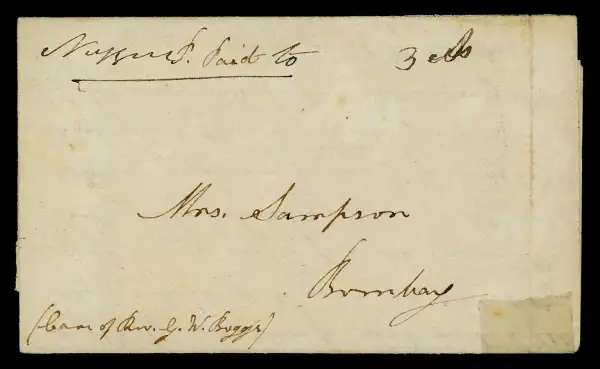 Nugger P. Paid to 3 as
Mrs. Sampson
Bombay
(Care of Rev. G. W. Boggs)